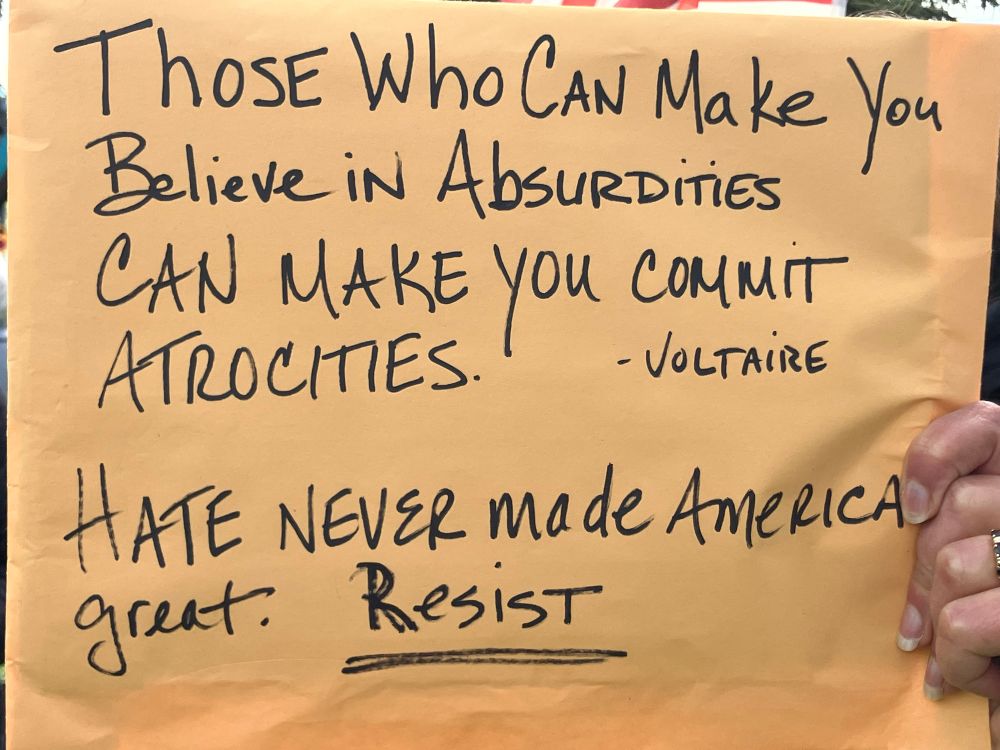 Those Who Can Make You
Believe in Absurdities
CAN MAKE YOU COMMIT
ATROCITIES. - VOLTAIRE
HATE NEVER made AMERICA
great. Resist